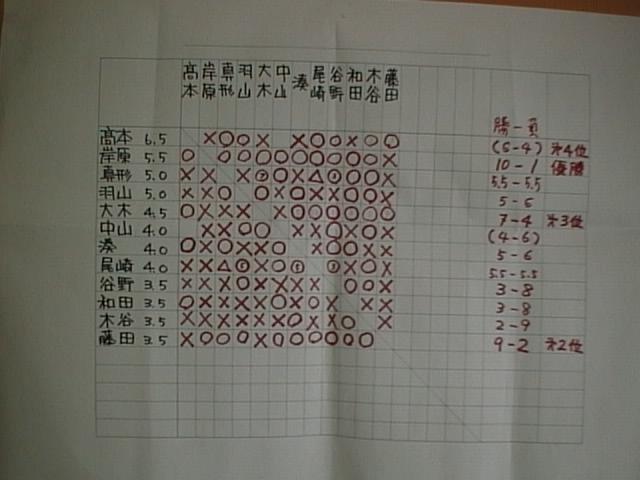 高本 岸原 真形 羽山 大木 中山 湊 尾崎 谷野 和田 木谷 藤田
勝-負
高本 6.5 × ○ ○ × × ○ ○ × ○ ○ (6-4) 第4位
岸原 5.5 ○ ○ ○ ○ ○ ○ ○ ○ ○ ○ × 10-1 優勝
真形 5.0 × × × × ○ × △ ○ ○ × 5.5-5.5
羽山 5.0 × × ○ ○ × × × ○ ○ × 5-6
大木 4.5 ○ × × × × ○ ○ ○ ○ ○ ○ 7-4 第3位
中山 4.0 × × ○ ○ × × ○ × ○ × (4-6)
湊 4.0 ○ × ○ × × ○ × ○ ○ × × 5-6
尾崎 4.0 × × △ × ○ × ○ × 5.5-5.5
谷野 3.5 × × × × × × ○ ○ × 3-8
和田 3.5 ○ × × × × ○ × ○ × × × 3-8
木谷 3.5 × × × × × × ○ × × ○ × 2-9
藤田 3.5 × ○ ○ ○ × ○ ○ ○ ○ ○ ○ 9-2 第2位